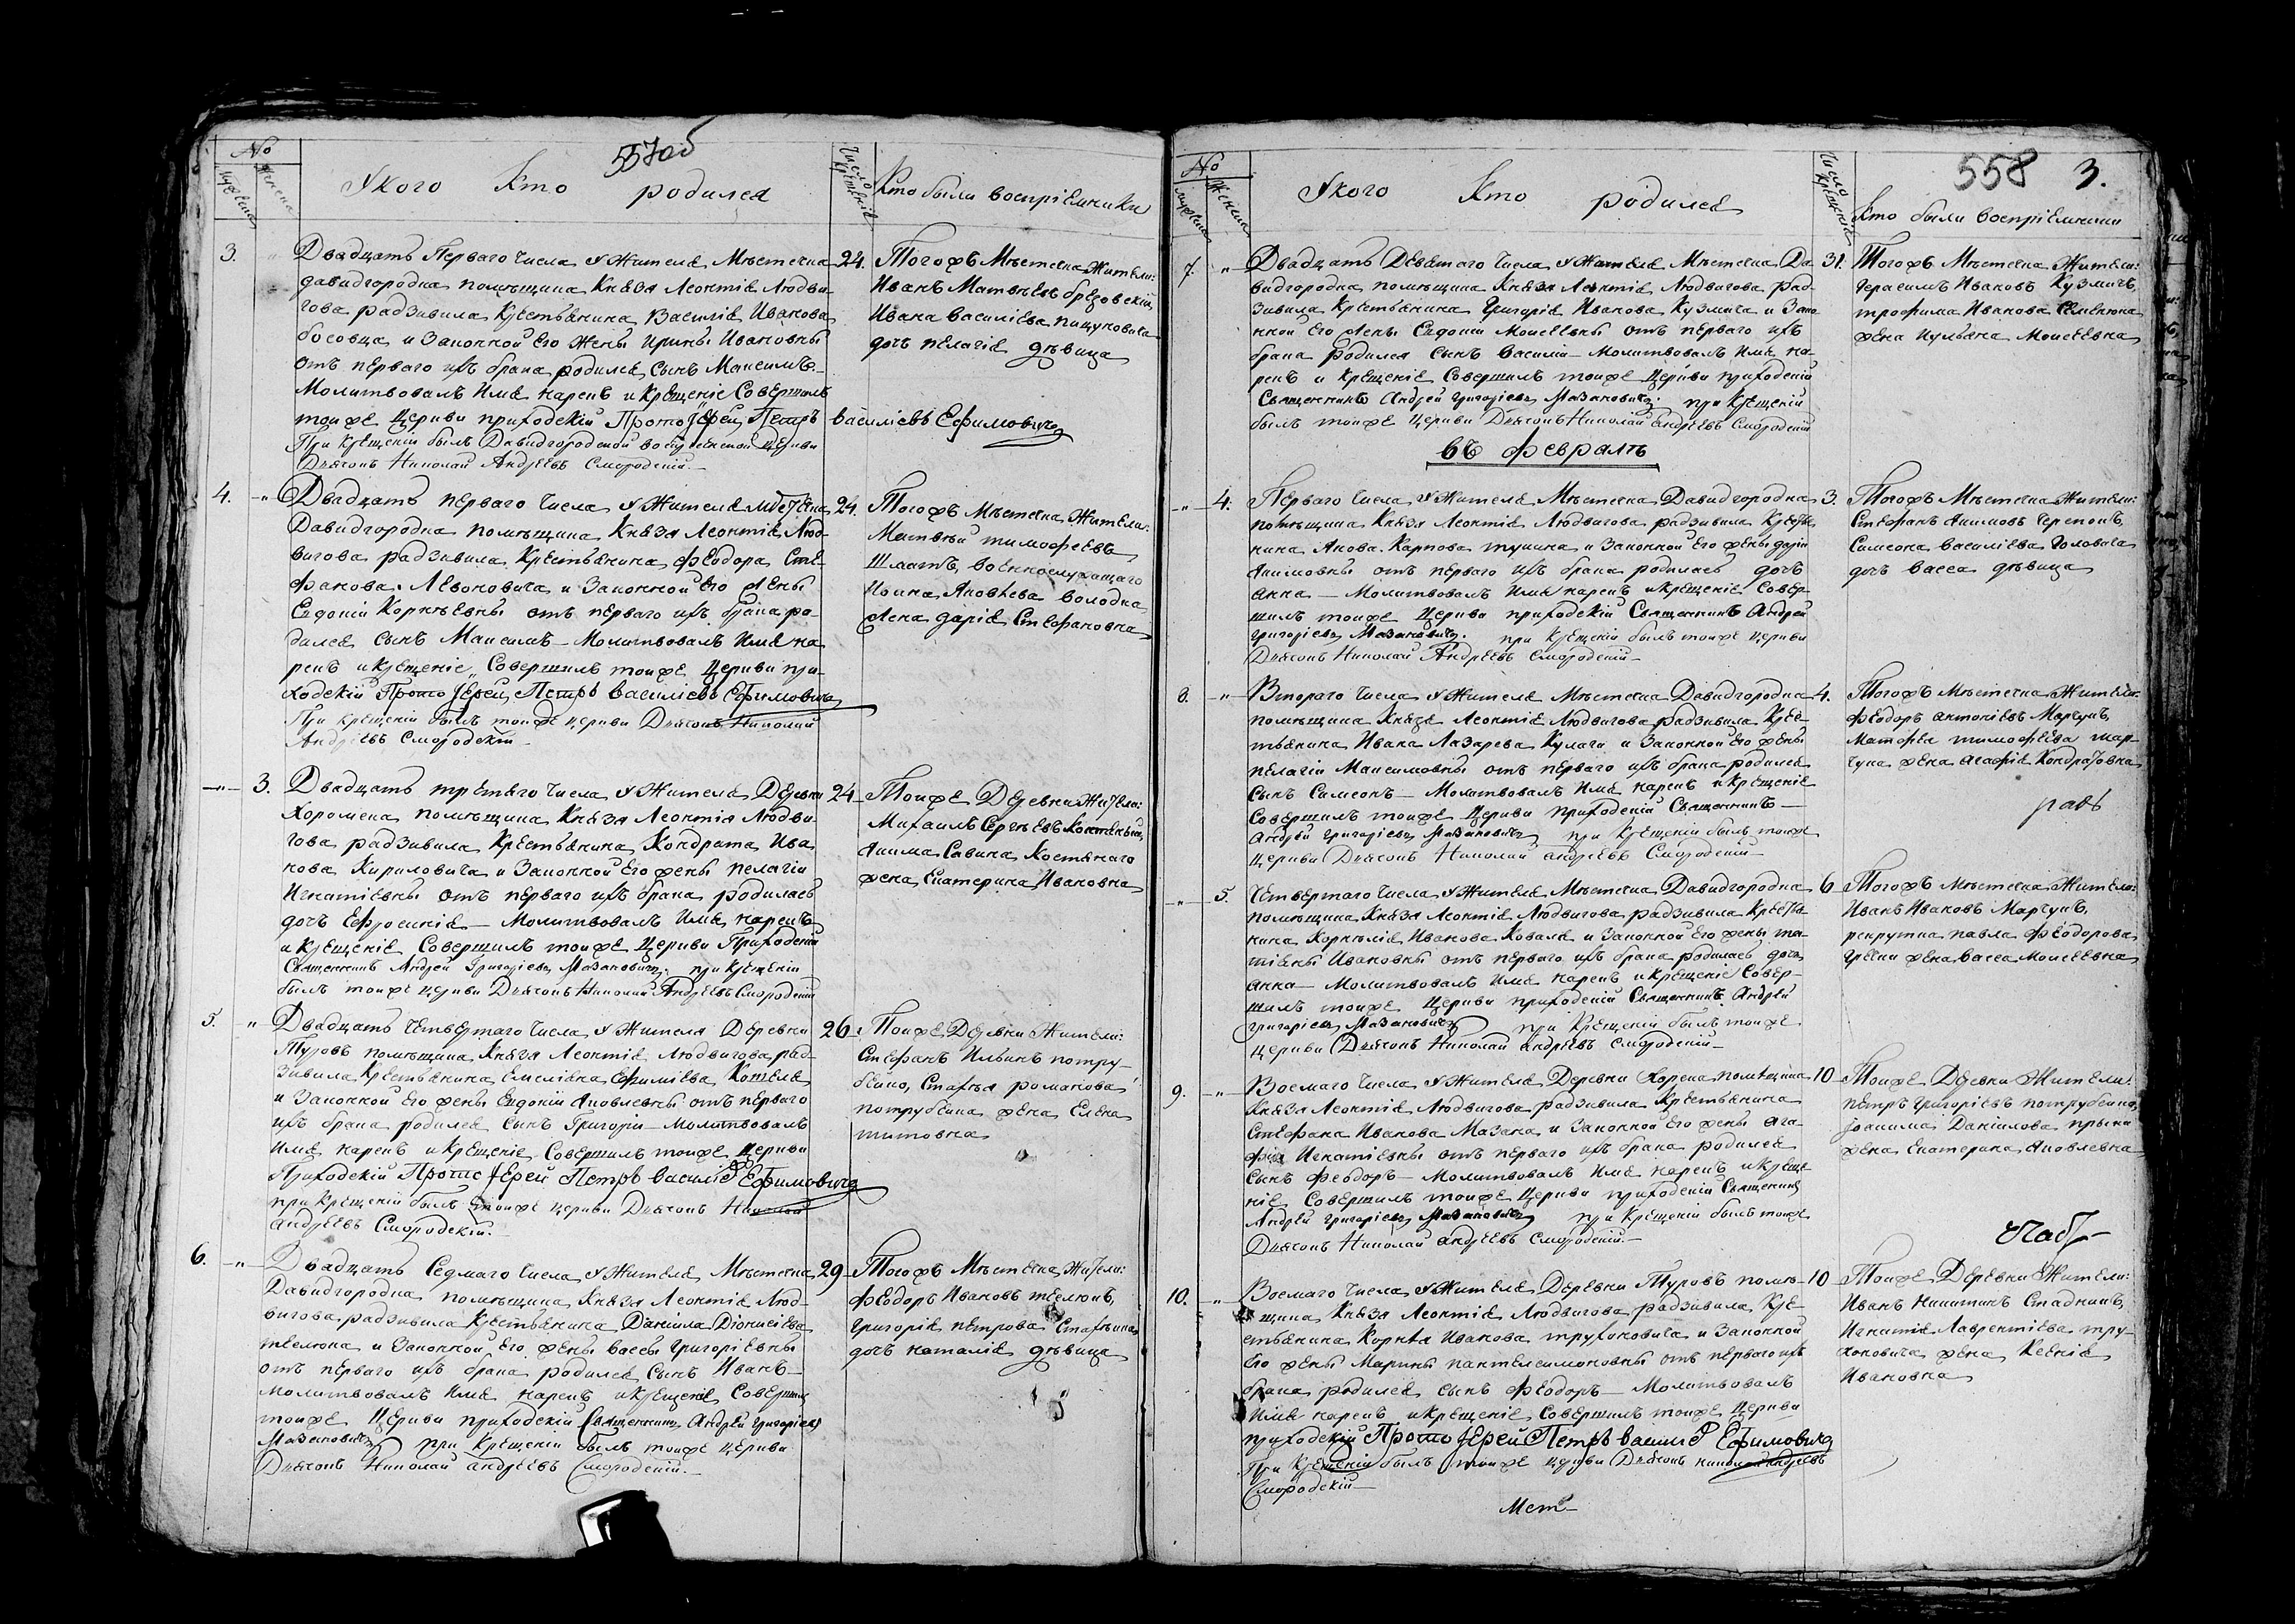 557об
№
мужеска
женска
У кого Кто родился
Число крещенія
Кто были воспріемники
3. " Двадцать Перваго числа у Жителя Мѣстечка 24.
Давидгородка помѣщика Князя Леонтія Людви-
гова радзивила Крестьянина Василія Иванова
босовца и Законной Его Жены Ирины Ивановны
отъ перваго ихъ брака родился сынъ Максимъ –
Молитвовалъ Имя нарекъ и Крещеніе Совершилъ
тоиже Церкви приходскій Прото Іерей Петръ Василіевъ Ефимовичъ
При Крещеніи былъ Давидгородской Церкви
Діяконъ Николай Андреевъ Смородскій. –
Тогожъ Мѣстечка Жители:
Иванъ Матвѣевъ брезовскій,
Ивана Василіева пищуковича
дочь пелагія дѣвица
4. – " Двадцать перваго числа у Жителя мѣстечка 24.
Давидгородка помѣщика Князя Леонтія Люд-
вигова радзивила Крестьянина Феодора Сте-
фанова Левоновича и Законной Его Жены
Евдокіи Корнѣевны отъ перваго ихъ брака ро-
дился сынъ Максимъ – Молитвовалъ Имя на
рекъ и Крещеніе Совершилъ тоиже Церкви при-
ходскій Прото Іерей Петръ Василіевъ Ефимовичъ
При Крещеніи былъ тоиже церкви Діяконъ Николай
Андреевъ Смородскій –
Тогожъ Мѣстечка Жители:
Матвѣй тимофеевъ
Шматъ, военнослужащаго
Иоана Яковлева володка
Жена дарія Стефановна
– " – 3. Двадцать третяго числа у Жителя Деревни 24
Хоромска помѣщика Князя Леонтія Людви-
гова радзивила Крестьянина Кондрата Ива
нова Кириловича и Законной Его жены пелагіи
Игнатіевны отъ перваго ихъ брака родилась
дочь Ефросинія – Молитвовалъ Имя нарекъ
и Крещеніе Совершилъ тоиже Церкви Приходскій
Священникъ Андрей Григоріевъ Мазановичъ. при Крещеніи
былъ тоиже церкви Діяконъ Николай Андреевъ Смородскій
Тоиже Деревни Жители:
Михаилъ Сергѣевъ Костянъкій,
Якима Савина Костянаго
жена Екатерина Ивановна
5. – " Двадцать Четвертаго числа у Жителя Деревни 26
Туровъ помѣщика Князя Леонтія Людвигова рад-
зивила Крестьянина Емеліяна Ефиміева Котеля
и Законной Его жены Евдокіи Яковлевны отъ перваго
ихъ брака родился сынъ Григорій – молитвовалъ
Имя нарекъ и Крещеніе Совершилъ тоиже Церкви
Приходскій Прото Іерей Петръ Василіевъ Ефимовичъ
при Крещеніи былъ тоиже церкви Діяконъ Николай
Андреевъ Смородскій. –
Тоиже Деревни Жители:
Стефанъ Ильинъ потру-
бейко, Стахѣя романова
потрубейка жена Елена
титовна
6. – " – Двадцать Седмаго числа у Жителя Мѣстечка 29
Давидгородка помѣщика Князя Леонтія Люд-
вигова радзивила Крестьянина Даніила Діонисіева
телюка и Законной Его жены вассы Григоріевны
отъ перваго ихъ брака родился сынъ Иванъ –
молитвовалъ Имя нарекъ и Крещеніе Соверши
тоиже Церкви приходскій Священникъ Андрей Григоріевъ
Мазановичъ при Крещеніи былъ тоиже церкви
Діяконъ Николай андреевъ Смородскій. –
Тогожъ Мѣстечка Жители:
Феодоръ Ивановъ телюкъ,
Григорія петрова Стахѣика
дочь наталія дѣвица
558 3.
№
мужеска
женска
У кого Кто родился
Число крещенія
Кто были воспріемники
7. " Двадцать Девятаго числа у Жителя Мѣстечка Да 31.
видгородка помѣщика Князя Леонтія Людвигова рад-
зивила Крестьянина Григорія Иванова Кузмича и Зако
нной Его жены Евдокіи Моисеевны отъ перваго ихъ
брака родился сынъ василій – Молитвовалъ Имя на-
рекъ и Крещеніе Совершилъ тоиже Церкви приходскій
Священникъ Андрей Григоріевъ Мазановичъ. при Крещеніи
былъ тоиже церкви Діяконъ Николай андреевъ Смородскій
Тогожъ Мѣстечка Жители:
Герасимъ Ивановъ Кузмичъ,
трофима Иванова Семенюка
жена Иульяна Моисеевна
Въ Февралѣ
– " – 4. Перваго числа у Жителя Мѣстечка Давидгородка 3.
помѣщика Князя Леонтія Людвигова радзивила Кресть
янина Якова Карпова тушика и Законной Его жены даріи
Якимовны отъ перваго ихъ брака родилась дочь
анна – Молитвовалъ Имя нарекъ и Крещеніе Совер-
шилъ тоиже Церкви приходскій Священникъ Андрей
Григоріевъ Мазановичъ. при Крещеніи былъ тоиже церкви
Діяконъ Николай Андреевъ Смородскій –
Тогожъ Мѣстечка Жители:
Стефанъ Якимовъ Черепокъ,
Симеона василіева Головача
дочь васса дѣвица
8. " Втораго числа у Жителя Мѣстечка Давидгородка 4.
помѣщика Князя Леонтія Людвигова радзивила Крес-
тьянина Ивана Лазарева Кулаги и Законной Его жены
пелагіи Максимовны отъ перваго ихъ брака родился
сынъ Симеонъ – Молитвовалъ Имя нарекъ и Крещеніе
Совершилъ тоиже Церкви приходскій Священникъ –
Андрей Григоріевъ Мазановичъ при Крещеніи былъ тоиже
церкви Діяконъ Николай андреевъ Смородскій –
Тогожъ Мѣстечка Жители:
Феодоръ антоніевъ Марчукъ,
Матфея тимофѣева мар-
чука жена агафія Кондратовна
– " – 5. Четвертаго числа у Жителя Мѣстечка Давидгородка 6
помѣщика Князя Леонтія Людвигова радзивила Кресть
янина Корнѣлія Иванова Коваля и Законной Его жены та-
тіяны Ивановны отъ перваго ихъ брака родилась дочь
анна – Молитвовалъ Имя нарекъ и Крещеніе Совер-
шилъ тоиже Церкви приходскій Священникъ Андрей
Григоріевъ Мазановичъ при Крещеніи былъ тоиже
церкви Діяконъ Николай андреевъ Смородскій –
Тогожъ Мѣстечка Жители:
Иванъ Ивановъ Марчукъ,
рекрутка павла Феодорова
Гречки жена васса Моисеевна
9. – " – Восмаго числа у Жителя Деревни Хорска помѣщика 10
Князя Леонтія Людвигова радзивила Крестьянина
Стефана Иванова Мазана и Законной Его жены ага-
фіи Игнатіевны отъ перваго ихъ брака родился
сынъ Феодоръ – Молитвовалъ Имя нарекъ и Креще
ніе Совершилъ тоиже Церкви приходскій Священникъ
Андрей Григоріевъ Мазановичъ при Крещеніи былъ тоиже
Діяконъ Николай андреевъ Смородскій. –
Тоиже Деревни Жители:
петръ Григоріевъ потрубейко,
Іоакима Даніилова прыка
жена Екатерина Яковлевна
10. – " – Восмаго числа у Жителя Деревни Туровъ помѣ- 10
щика Князя Леонтія Людвигова радзивила Кре-
стьянина Корнѣя Иванова трухоновича и Законной
Его жены Марины пантелеимоновны отъ перваго ихъ
брака родился сынъ Феодоръ – Молитвовалъ
Имя нарекъ и Крещеніе Совершилъ тоиже Церкви
приходскій Прото Іерей Петръ Василіевъ Ефимовичъ
При Крещеніи былъ тоиже церкви Діяконъ николай андреевъ
Смородскій –
Тоиже Деревни Жители:
Иванъ Никитинъ Стадникъ,
Игнатія Лаврентіева тру-
хоновича жена Ксенія
Ивановна